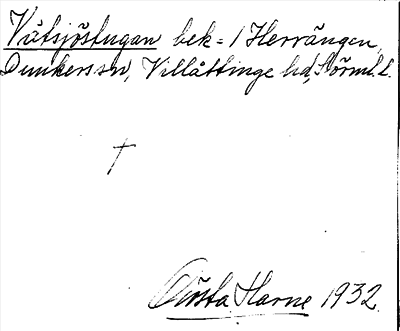 Våtsjöstugan bek = 1 Herrängen,
Dunkers sn, Villåttinge hd, Sörml. l.
†
Gösta Harne 1932.